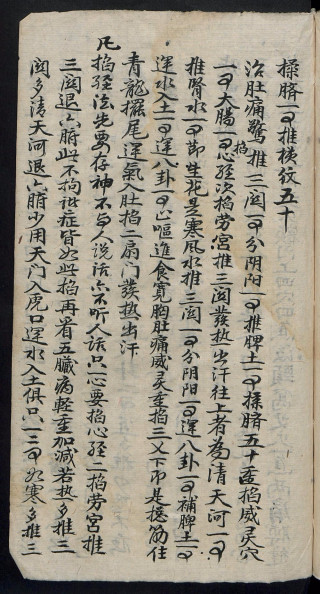 揉臍一百推橫紋五十
治肚痛驚推三関一百分阴阳一百推脾土一百揉臍五十重掐威灵穴
一百大腸一百心経次掐劳宫推三関發热出汗往上者為清天河一百
推腎水一百即生花是寒風水推三関一百分阴阳一百運八卦一百補脾土一百
運水入土一百運八卦一百止嘔進食寛胸肚痛威灵重掐三又下即是捻筋住
青龍擺尾運氣入肚掐二扇门發热出汗
凡掐経法先要存神不与人说话亦不听人话只心要掐心経二掐劳宫推
三関退六腑此不拘诸症皆如此掐再看五臟病輕重加減若热多推三
関多清天河退六腑少用天门入虎口運水入土俱只一二百如寒多推三